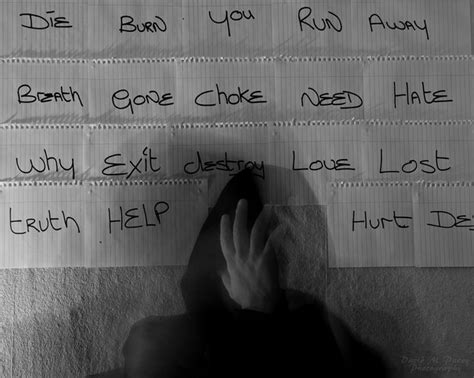 DIE BURN YOU RUN AWAY
BREATH GONE CHOKE NEED HATE
WHY EXIT destroy LOVE LOST
truth HELP HURT DE
Photography